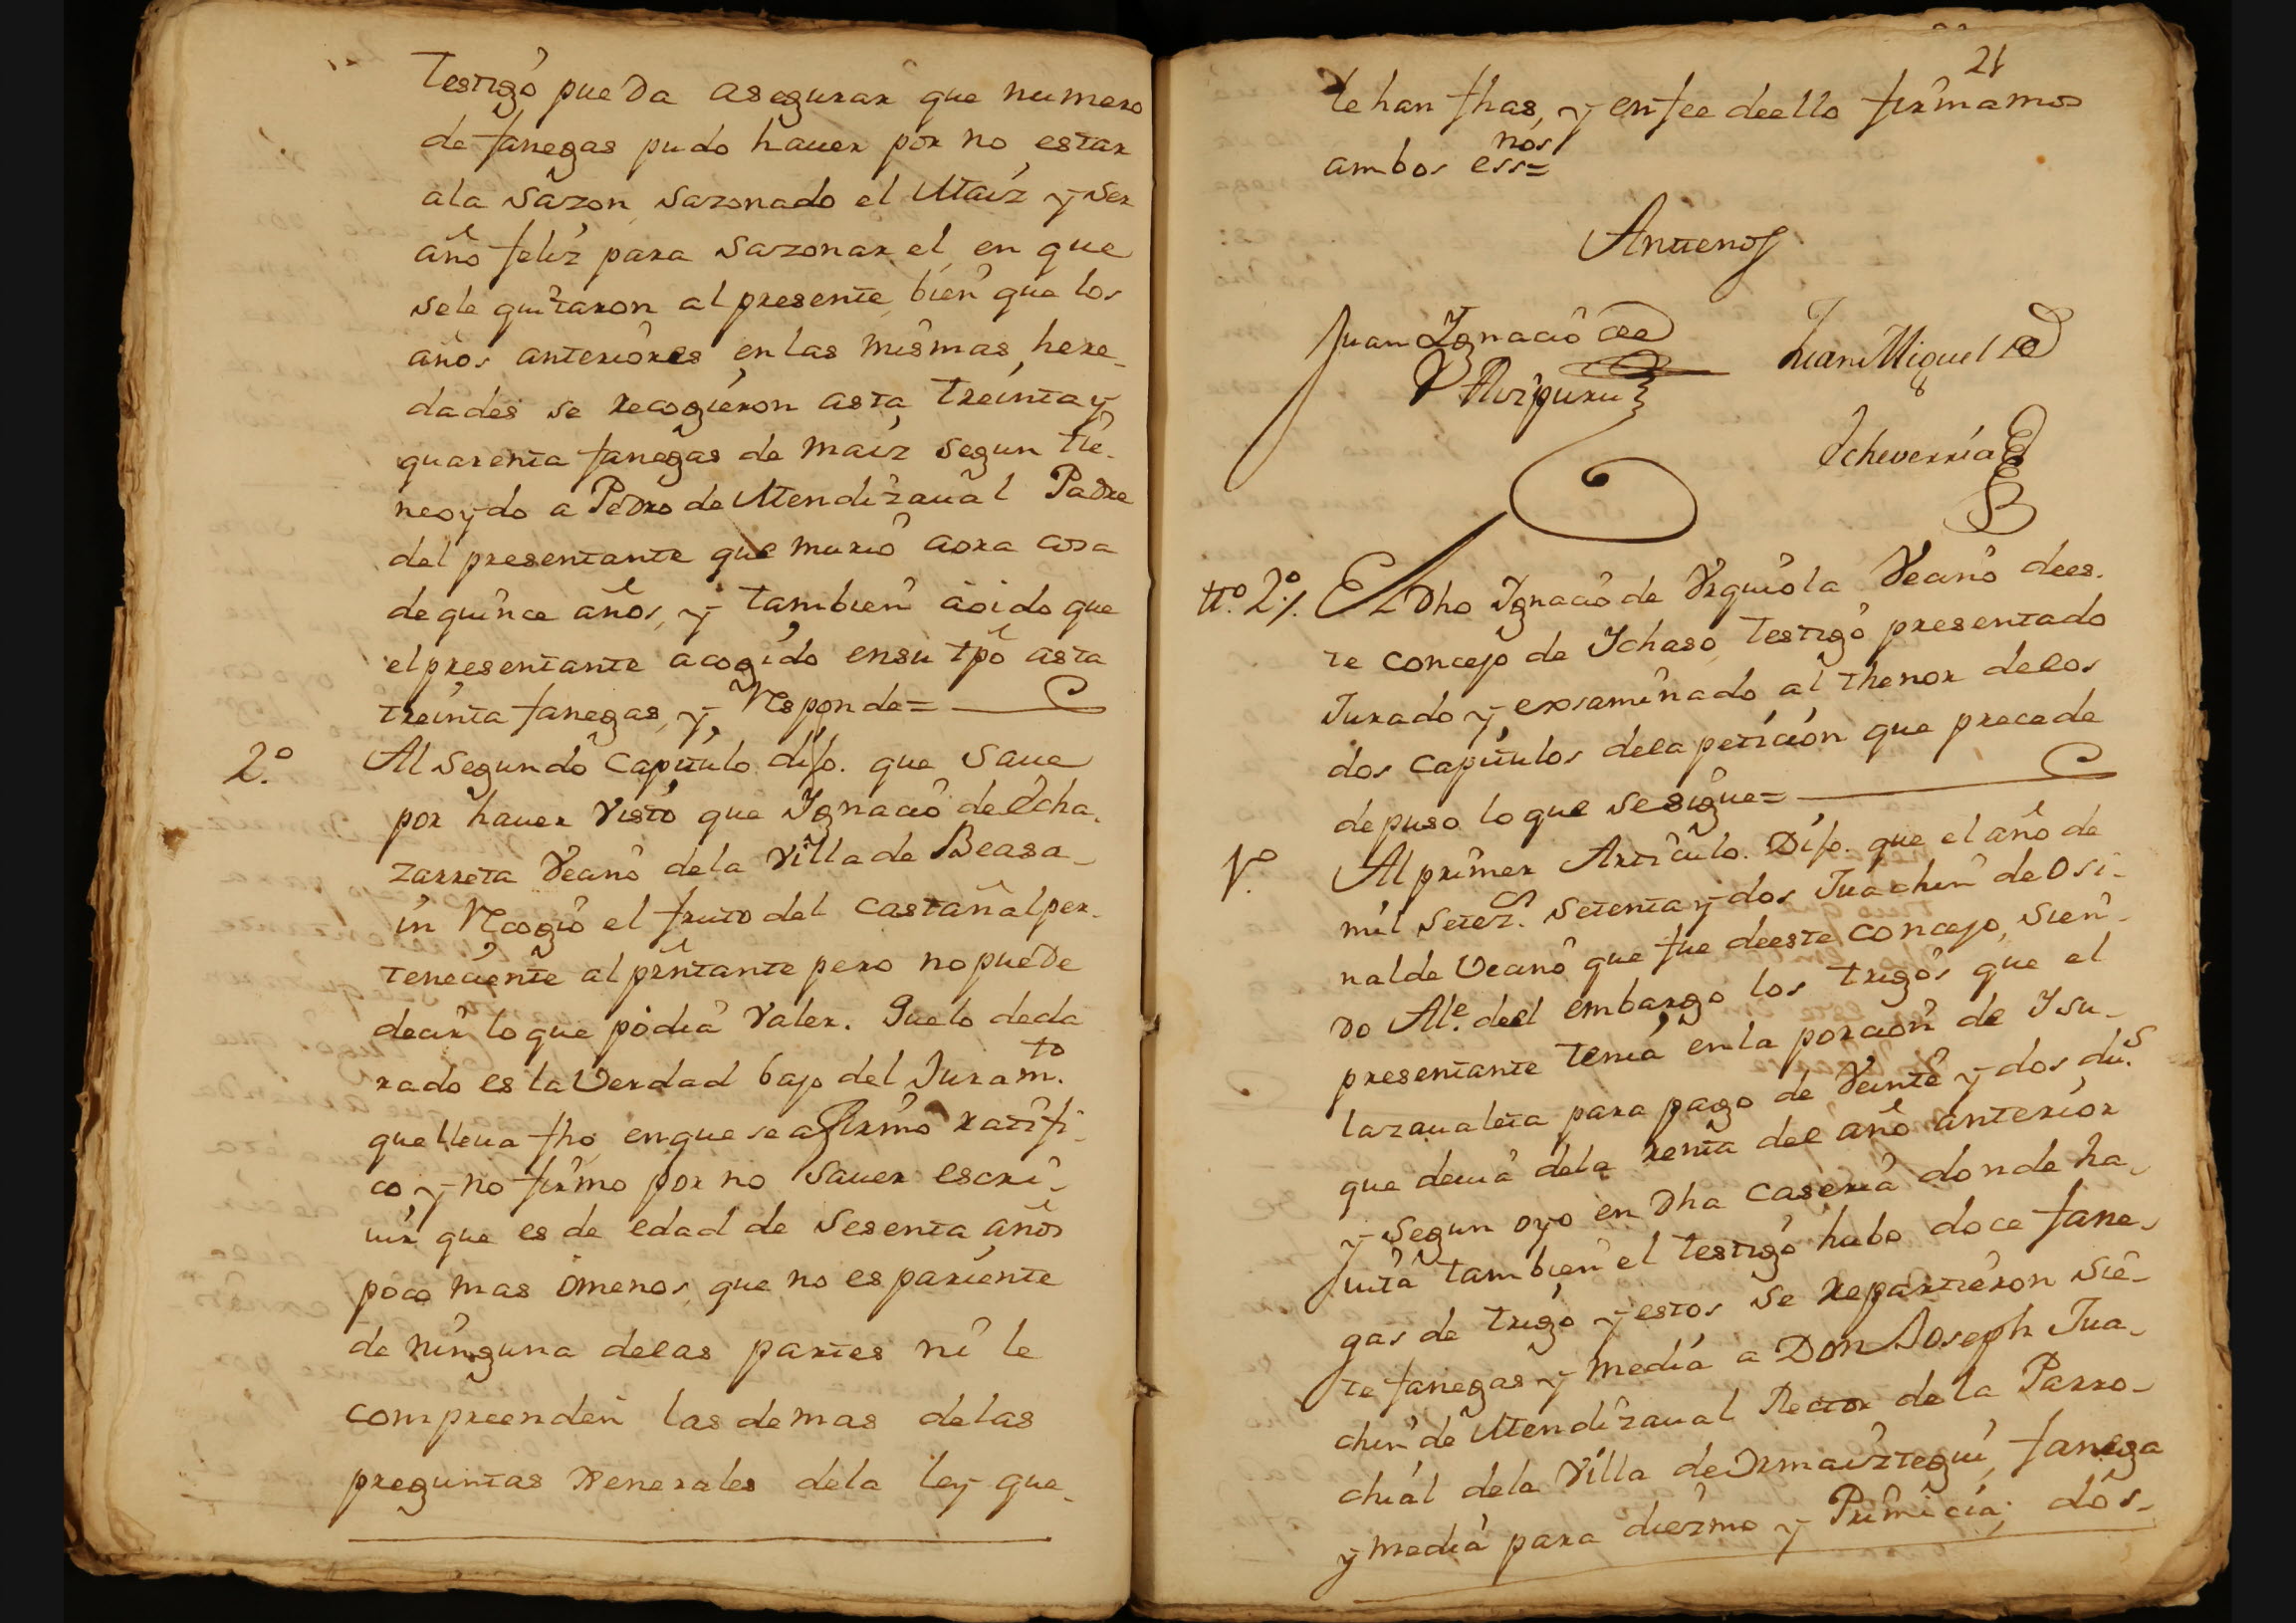 testigo pueda asegurar que numero
de fanegas pudo hauer por no estar
ala sazon sazonado el Maiz y ser
año feliz para sazonar el en que
sele quitaron al presente bien que los
años anteriores en las mismas here-
dades se recogieron asta treinta y
quarenta fanegas de maiz segun tie-
ne oydo a Pedro de Mendizaual Padre
del presentante que murio aora cosa
de quince años, y tambien à oido que
el presentante a cogido en su tpõ asta
treinta fanegas, y Responde=
2.º Al segundo capitulo dijo. que saue
por hauer visto que Ygnacio de Echa-
zarreta Veçino dela villa de Beasa-
in Recogio el fruto del castañal per-
teneciente al prẽntante pero no puede
decir lo que podia valer. Que lo decla
rado es la Verdad bajo del Juram.to
que lleua fho en que se afirmo ratifi-
co y no firmo por no sauer escri-
uir que es de edad de sesenta años
poco mas ò menos, que no es pariente
de ninguna delas partes ni le
compreenden las demas delas
preguntas Xenerales dela ley que
21
le han fhas, y en fee de ello firmamos
ambos ess.nos=
Antenos
Juan Ygnacio de
Aizpuru
Juan Miguel de
Echeverria
tt.º 2.º El Dho Ygnacio de Vrquiola Veano de es-
te concejo de Ichaso testigo presentado
Jurado y exsaminado al thenor de los
dos capitulos dela peticion que precede
depuso lo que se sigue=
1.º Al primer Articulo. Dijo. que el año de
mil setez.s setenta y dos Juachin de Osi-
nalde Veano que fue de este concejo, sien-
do Al.e deel embargo los trigos que el
presentante tenia en la porcion de Isu-
lazaualeta para pago de Veinte y dos du.s
que deuia dela renta del año anterior
y segun oyo en Dha Caseria donde ha-
uita tambien el testigo hubo doce fane-
gas de trigo y estos se repartieron sie-
te fanegas y media a Don Joseph Jua-
chin de Mendizaual Rector de la Parro-
chial dela Villa de Ormaiztegui, fanega
y media para diezmo y Primicia; dos-